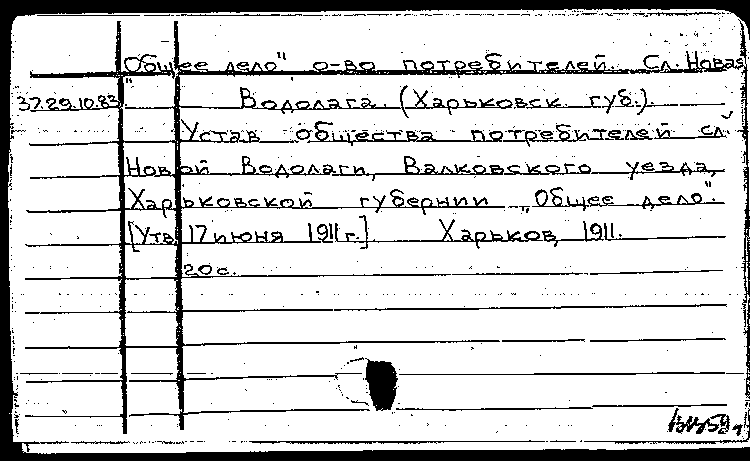 „Общее дело" о-во потребителей. Сл. Новая
37.29.10.83. Водолага. (Харьковск. губ.).
Устав общества потребителей сл.
Новой Водолаги, Валковского уезда,
Харьковской губернии „Общее дело".
[Утв. 17 июня 1911 г.]. Харьков, 1911.
20 с.